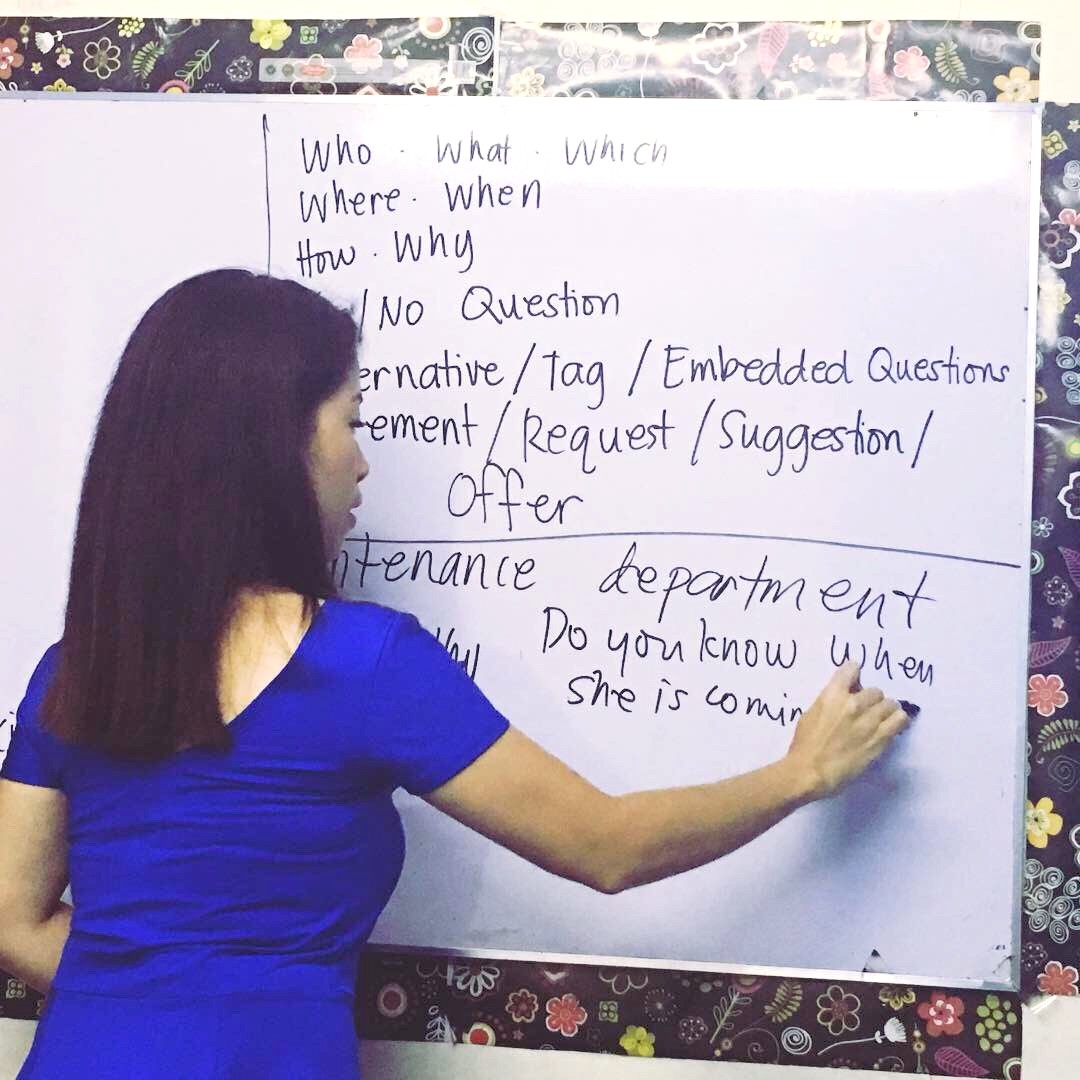 Who . What . Which
Where . When
How . Why
/No Question
ernative / Tag / Embedded Questions
ement / Request / Suggestion /
Offer
ntenance department
hy Do you know when
she is comin